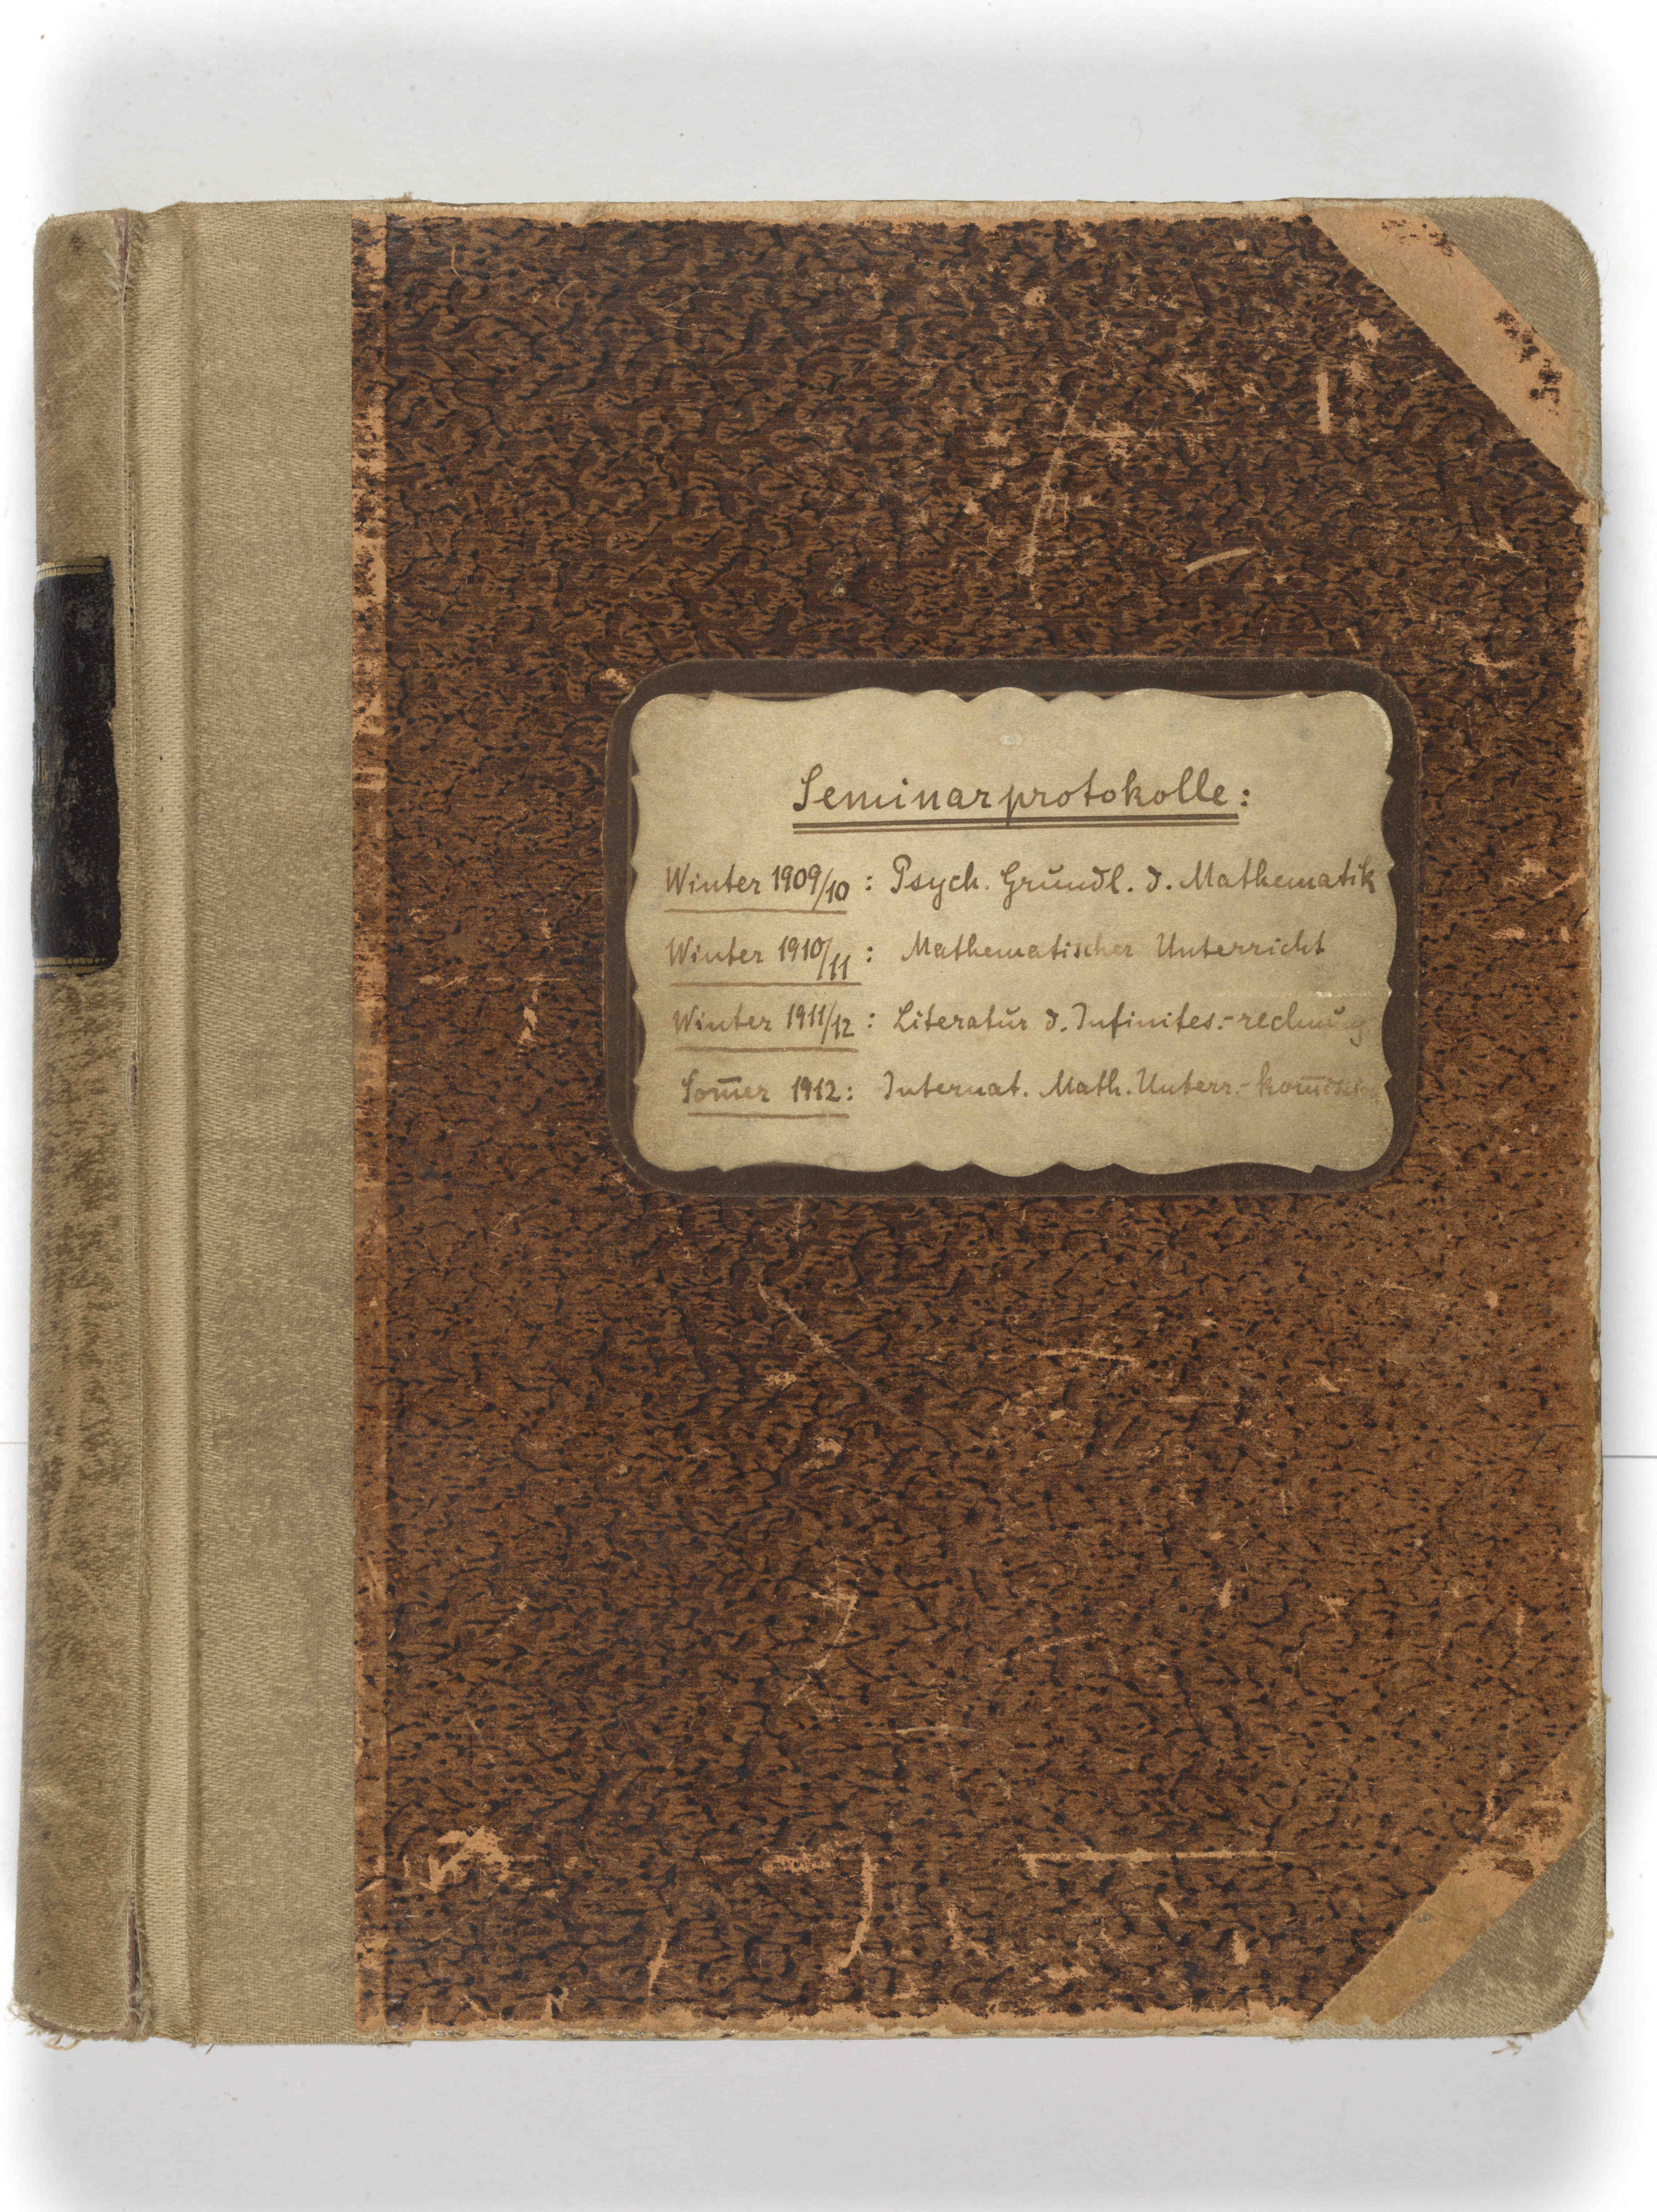 Seminarprotokolle:
Winter 1909/10: Psych. Grundl. d. Mathematik
Winter 1910/11: Mathematischer Unterricht
Winter 1911/12: Literatur d. Infinites.-rechnung
Som̅er 1912: Internat. Math. Unterr.-